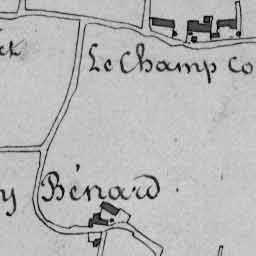 Le Champ Co
et
y Bénard.